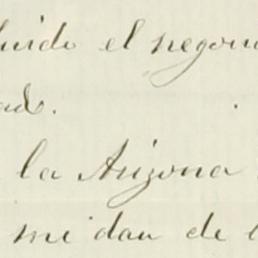 luido el negoci
ad.
la Arizona
mi dan de l